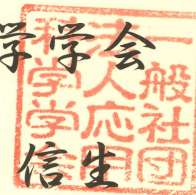 学学会
信生
一般社団
法人応用
科学学会